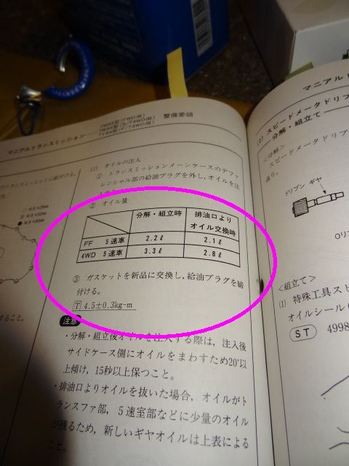 マニアルトランスミッション
整備要領
(1) オイルの注入
① トランスミッションメーンケースのデファ
レンシャル部の給油プラグを外し，オイルを注
② オイル量
分解・組立時 排油口より
オイル交換時
FF 5速車 2.2ℓ 2.1ℓ
4WD 5速車 3.3ℓ 2.8ℓ
③ ガスケットを新品に交換し，給油プラグを締
付ける。
T 4.5±0.3kg-m
注意
・分解・組立後オイルを注入する際は，注入後
サイドケース側にオイルをまわすため20°以
上傾け，15秒以上保つこと。
・排油口よりオイルを抜いた場合，オイルがト
ランスファ部，5速室部などに少量のオイル
が残るため，新しいギヤオイルは上表による
こと。
マニアルト
(2) スピードメータドリブ
分解・組立て
〈分解〉
スピードメータドリ
す。
ドリブン ギヤ
〈組立て〉
(1) 特殊工具スト
オイルシール
ST 4998